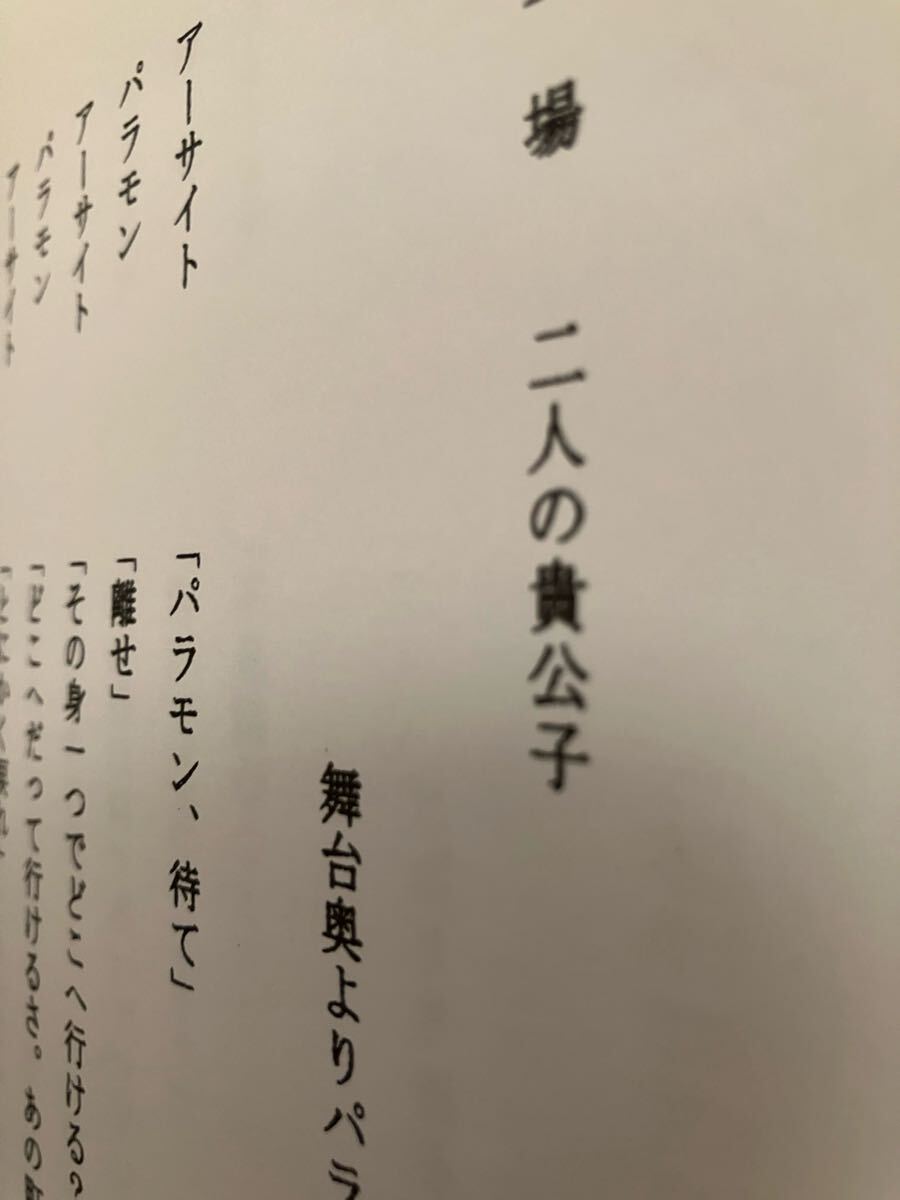 場　二人の貴公子
舞台奥よりパラ
アーサイト　「パラモン、待て」
パラモン　「離せ」
アーサイト　「その身一つでどこへ行ける
パラモン　「どこへだって行けるさ。あの
アーサイト